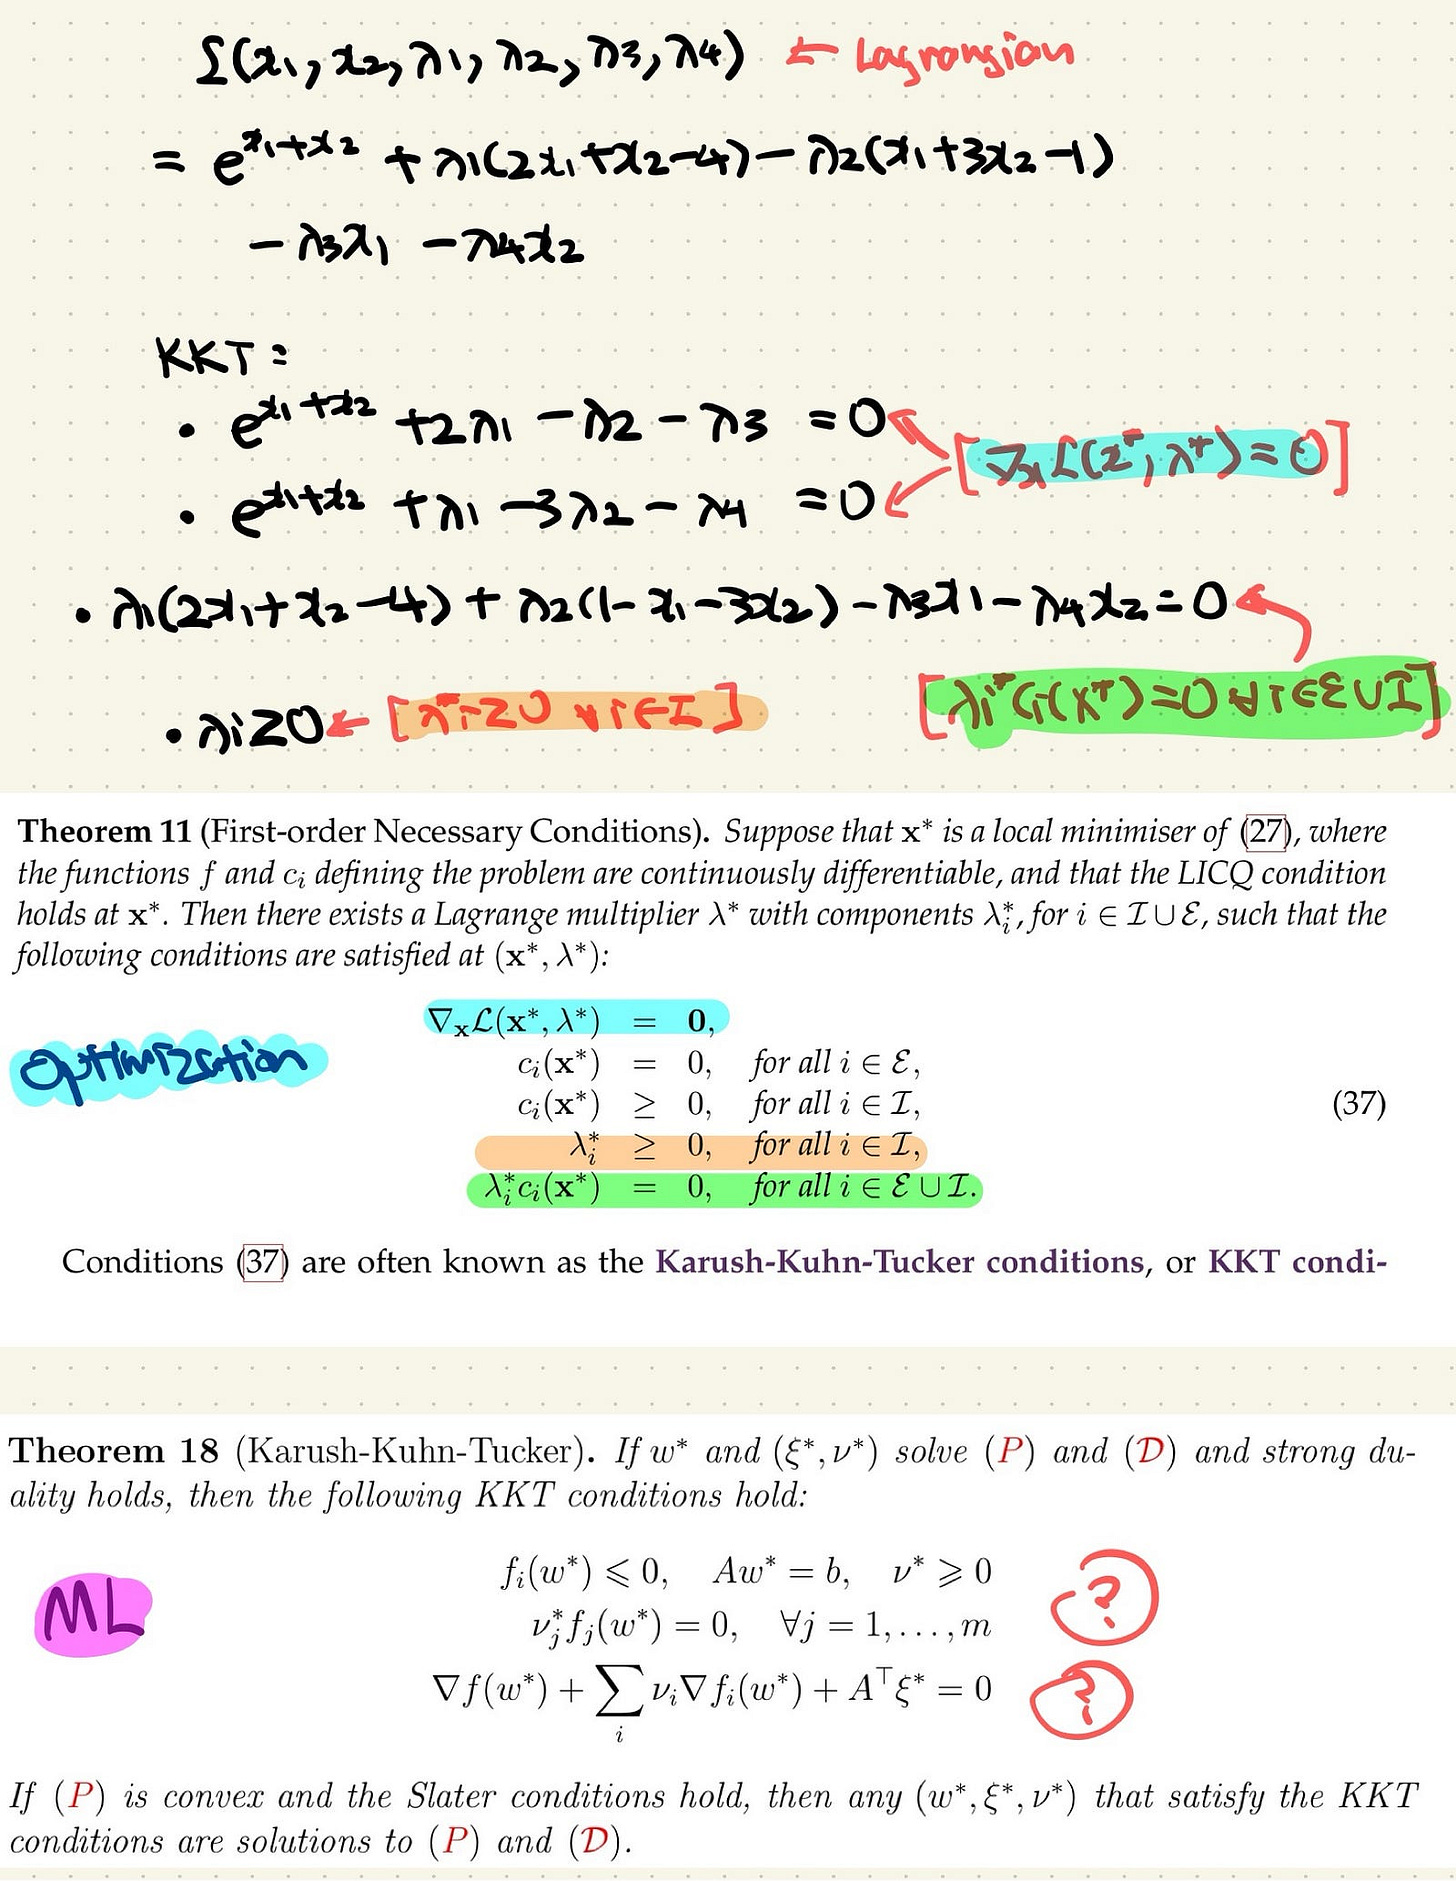 L(x₁, x₂, λ₁, λ₂, λ₃, λ₄) ← Lagrangian
= e^{x₁+x₂} + λ₁(2x₁+x₂-4) - λ₂(x₁+3x₂-1)
- λ₃x₁ - λ₄x₂
KKT:
• e^{x₁+x₂} + 2λ₁ - λ₂ - λ₃ = 0
[∇ₓL(x*, λ*) = 0]
• e^{x₁+x₂} + λ₁ - 3λ₂ - λ₄ = 0
• λ₁(2x₁+x₂-4) + λ₂(1-x₁-3x₂) - λ₃x₁ - λ₄x₂ = 0
• λi ≥ 0 ← [λ*i ≥ 0 ∀ i ∈ I]
[λi* Ci(x*) = 0 ∀ i ∈ ℰ ∪ I]
Theorem 11 (First-order Necessary Conditions). Suppose that x* is a local minimiser of (27), where
the functions f and cᵢ defining the problem are continuously differentiable, and that the LICQ condition
holds at x*. Then there exists a Lagrange multiplier λ* with components λᵢ*, for i ∈ I ∪ ℰ, such that the
following conditions are satisfied at (x*, λ*):
∇ₓL(x*, λ*) = 0,
Optimization
cᵢ(x*) = 0, for all i ∈ ℰ,
cᵢ(x*) ≥ 0, for all i ∈ I,
(37)
λᵢ* ≥ 0, for all i ∈ I,
λᵢ*cᵢ(x*) = 0, for all i ∈ ℰ ∪ I.
Conditions (37) are often known as the Karush-Kuhn-Tucker conditions, or KKT condi-
Theorem 18 (Karush-Kuhn-Tucker). If w* and (ξ*, ν*) solve (P) and (D) and strong du-
ality holds, then the following KKT conditions hold:
fᵢ(w*) ⩽ 0, Aw* = b, ν* ⩾ 0
?
ML
νⱼ*fⱼ(w*) = 0, ∀j = 1, . . . , m
∇f(w*) + ∑ᵢ νᵢ∇fᵢ(w*) + A⊤ξ* = 0
?
If (P) is convex and the Slater conditions hold, then any (w*, ξ*, ν*) that satisfy the KKT
conditions are solutions to (P) and (D).